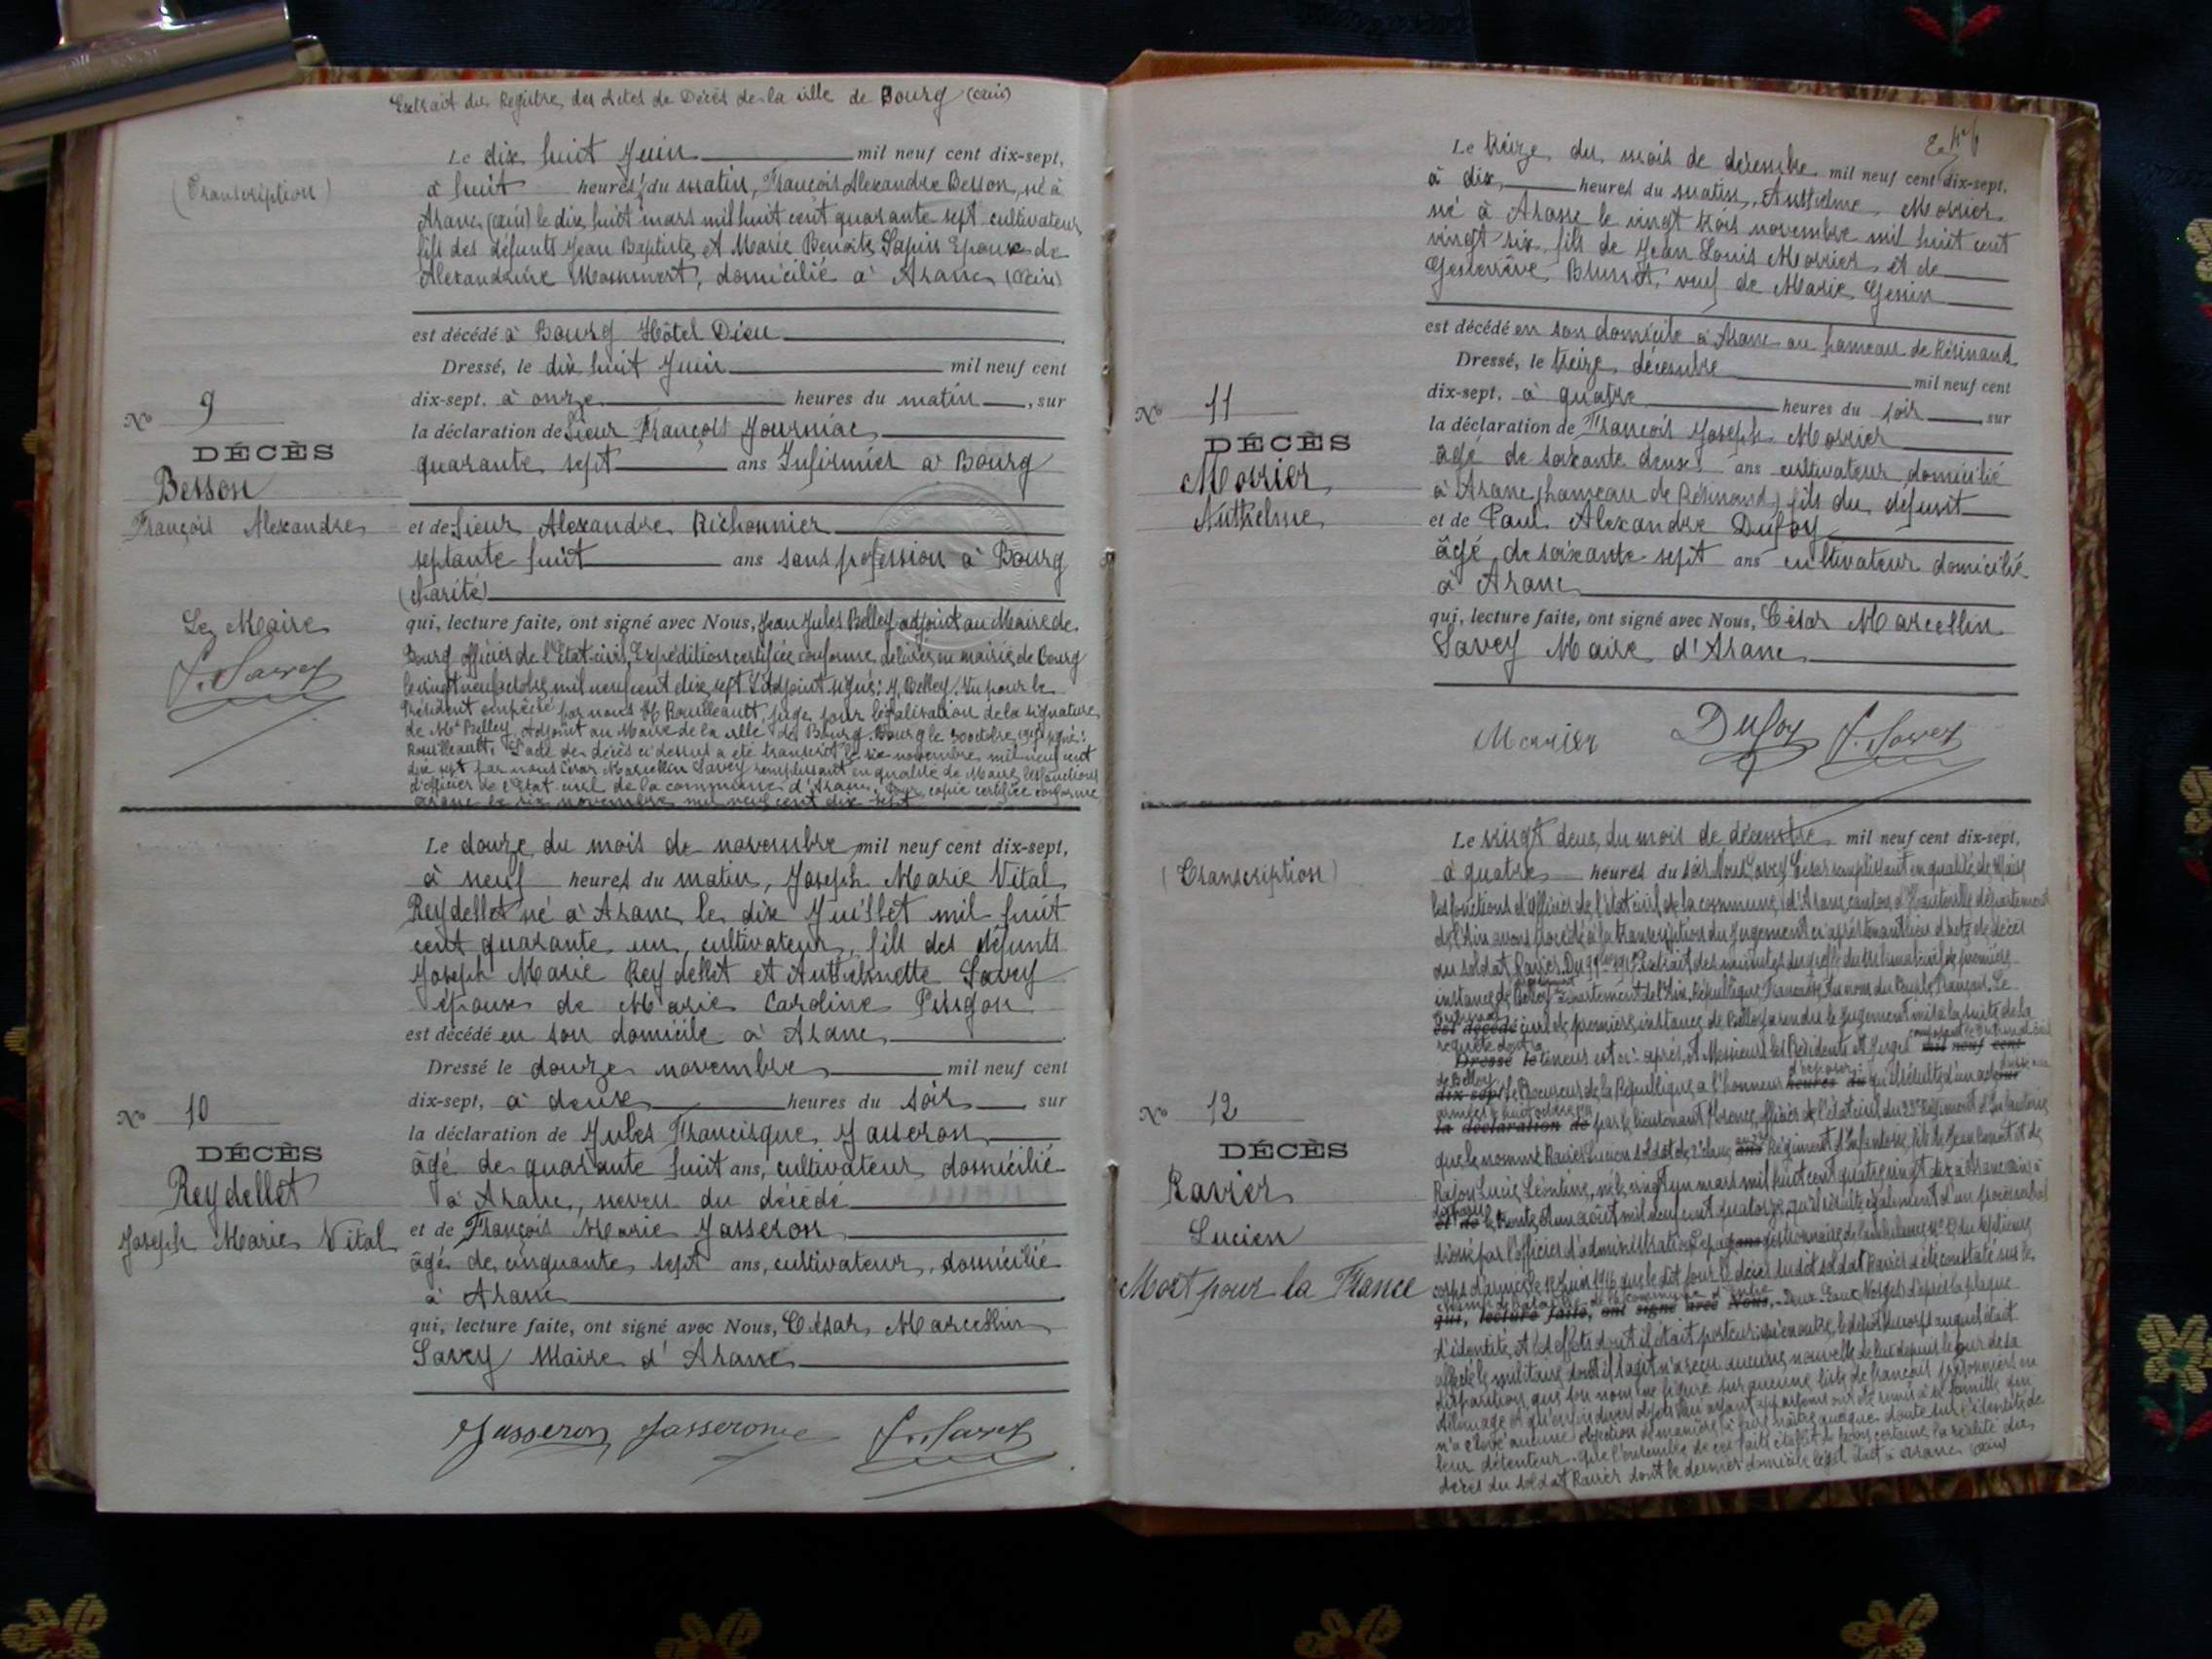 Extrait du Registre des Actes de Décès de la ville de Bourg (Ain)
(Transcription)
Le dix huit Juin mil neuf cent dix-sept,
à huit heures du matin, François Alexandre Besson, né à
Aranc (Ain) le dix huit mars mil huit cent quarante sept cultivateur
fils des défunts Jean Baptiste et Marie Benoite Sapin Epoux de
Alexandrine Mommert, domicilié à Aranc (Ain)
est décédé à Bourg Hôtel Dieu
Dressé, le dix huit Juin mil neuf cent
dix-sept, à onze heures du matin, sur
la déclaration de Sieur François Journiac
quarante sept ans Infirmier à Bourg
et de Sieur Alexandre Richonnier
septante huit ans sans profession à Bourg
(charité)
qui, lecture faite, ont signé avec Nous, Jean Jules Belley adjoint au Maire de
Bourg officier de l'Etat-civil, Expédition certifiée conforme, délivrée en mairie de Bourg
le vingt neuf octobre mil neuf cent dix sept L'adjoint signé: J. Belley. Vu pour le
Président empêché par nous Rouilleault, juge, pour légalisation de la signature
de Mr Belley Adjoint au Maire de la ville de Bourg. Bourg le 30 octobre 1917 signé:
Rouilleault. L'acte de décès ci dessus a été transcrit le six novembre mil neuf cent
dix sept par nous César Marcellin Savey remplissant en qualité de Maire les fonctions
d'officier de l'Etat civil de la commune d'Aranc. Pour copie certifiée conforme
Aranc le six novembre mil neuf cent dix sept
No 9
DÉCÈS
Besson
François Alexandre
Le Maire
Savey
Le douze du mois de novembre mil neuf cent dix-sept,
à neuf heures du matin, Joseph Marie Vital
Reydellet né à Aranc le dix Juillet mil huit
cent quarante un, cultivateur, fils des défunts
Joseph Marie Reydellet et Anthelmette Savey
époux de Marie Caroline Pingon
est décédé en son domicile à Aranc
Dressé le douze novembre mil neuf cent
dix-sept, à deux heures du soir sur
la déclaration de Jules Francisque Jasseron
âgé de quarante huit ans, cultivateur domicilié
à Aranc, neveu du décédé
et de François Marie Jasseron
âgé de cinquante sept ans, cultivateur, domicilié
à Aranc
qui, lecture faite, ont signé avec Nous, César Marcellin
Savey Maire d'Aranc
No 10
DÉCÈS
Reydellet
Joseph Marie Vital
Jasseron Jasseron Savey
Le treize du mois de décembre mil neuf cent dix-sept,
à dix heures du matin, Anthelme Morrier
né à Aranc le vingt trois novembre mil huit cent
vingt six, fils de Jean Louis Morrier et de
Geneviève Brunet, veuf de Marie Genin
est décédé en son domicile à Aranc au hameau de Résinand
Dressé, le treize décembre mil neuf cent
dix-sept, à quatre heures du soir sur
la déclaration de François Joseph Morrier
âgé de soixante deux ans cultivateur domicilié
à Aranc, hameau de Résinand, fils du défunt
et de Paul Alexandre Dufoy
âgé de soixante sept ans cultivateur domicilié
à Aranc
qui, lecture faite, ont signé avec Nous, César Marcellin
Savey Maire d'Aranc
No 11
DÉCÈS
Morrier
Anthelme
Morrier Dufoy Savey
(Transcription)
Le vingt deux du mois de décembre mil neuf cent dix-sept,
à quatre heures du soir Nous Savey César remplissant en qualité de Maire
les fonctions d'officier de l'état civil de la commune d'Aranc canton d'Hauteville département
de l'Ain avons procédé à la transcription du Jugement ci après tenant lieu d'acte de décès
du soldat Ravier. Extrait des minutes du greffe du tribunal civil de première
instance de Belley département de l'Ain. République Française. Au nom du Peuple Français. Le
tribunal civil de première instance de Belley a rendu le Jugement mis à la suite de la
requête dont la teneur est ci-après, à Messieurs les Présidents et Juges composant le tribunal civil
de Belley le Procureur de la République a l'honneur d'exposer: qu'il résulte d'un acte
par le lieutenant officier de l'état civil du 23e Régiment d'Infanterie
que le nommé Ravier Lucien soldat de 2e classe Régiment d'Infanterie, fils de Jean et de
Rajon Lucie Léontine, né le vingt un mars mil huit cent quatre vingt dix à Aranc (Ain) a
disparu le trente et un août mil neuf cent quatorze, qu'il résulte également d'un procès verbal
dressé par l'officier d'administration gestionnaire de l'ambulance
corps d'armée le juin 1916 que le dit jour le décès du dit soldat Ravier a été constaté sur le
champ de bataille de la commune d'Entre-Deux-Eaux Vosges d'après la plaque
d'identité et les effets dont il était porteur; qu'en outre, le dépôt du corps auquel était
affecté le militaire dont il s'agit n'a reçu aucune nouvelle de lui depuis le jour de sa
disparition, que son nom ne figure sur aucune liste de français prisonniers en
Allemagne et qu'enfin divers objets lui ayant appartenu ont été remis à sa famille qui
n'a élevé aucune objection de manière à faire naître quelque doute sur l'identité de
leur détenteur. Que l'ensemble de ces faits établit de façon certaine la réalité du
décès du soldat Ravier dont le dernier domicile légal était à Aranc (Ain)
No 12
DÉCÈS
Ravier
Lucien
Mort pour la France